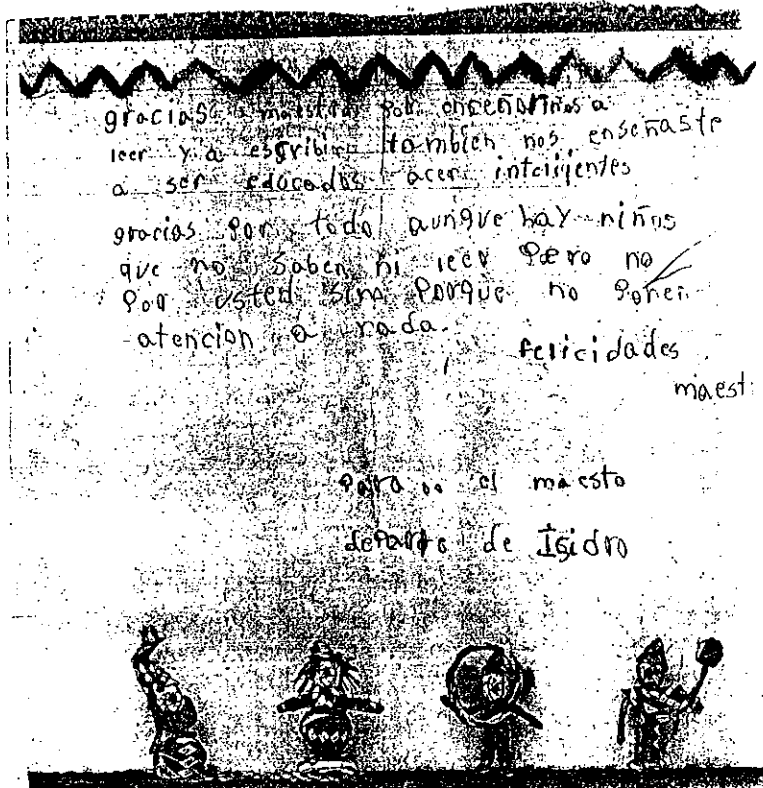 gracias maestro por enseñarnos a
leer y a esgribir tambien nos enseñaste
a ser educados acer inteligentes
gracias por todo aunque hay niños
que no saben ni leer pero no
por usted sino porque no ponen
atencion a nada.
felicidades
maest
para el maesto
departe de Isidro